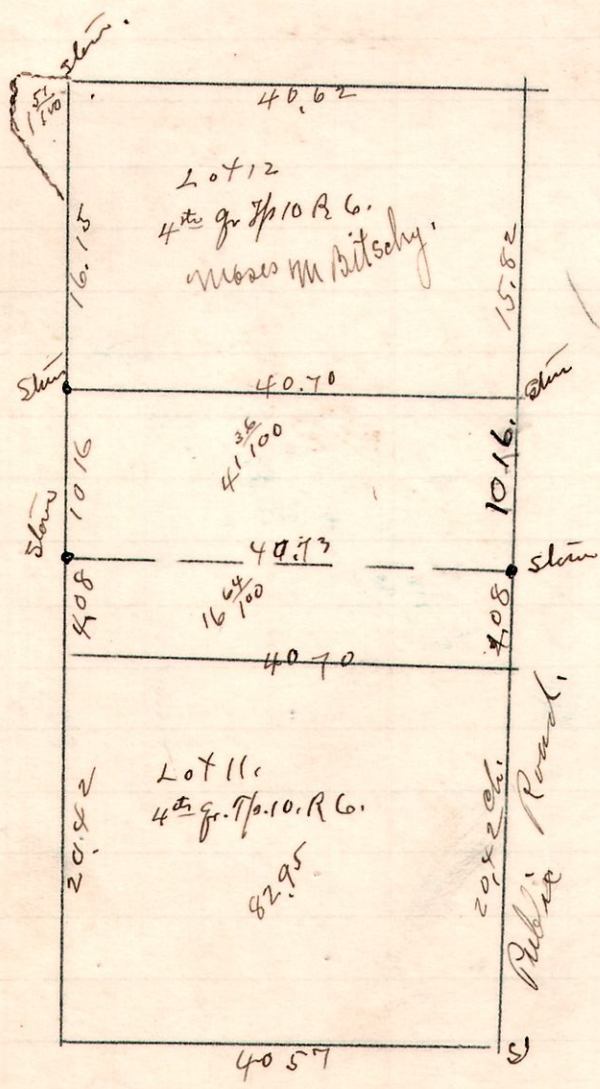 Stone.
1 51/100
40.62
Lot 12
4th qr Tp 10 R 6.
Moses M Bitschy.
16.15
15.82
Stone
40.70
Stone
41 36/100
10 16
10.16.
Stone
40.73
Stone
16 64/100
4,08
4,08
40 70
Lot 11.
4th qr. Tp. 10. R 6.
82.95
20.42
20.42 Ch.
Public Road.
40 57
S